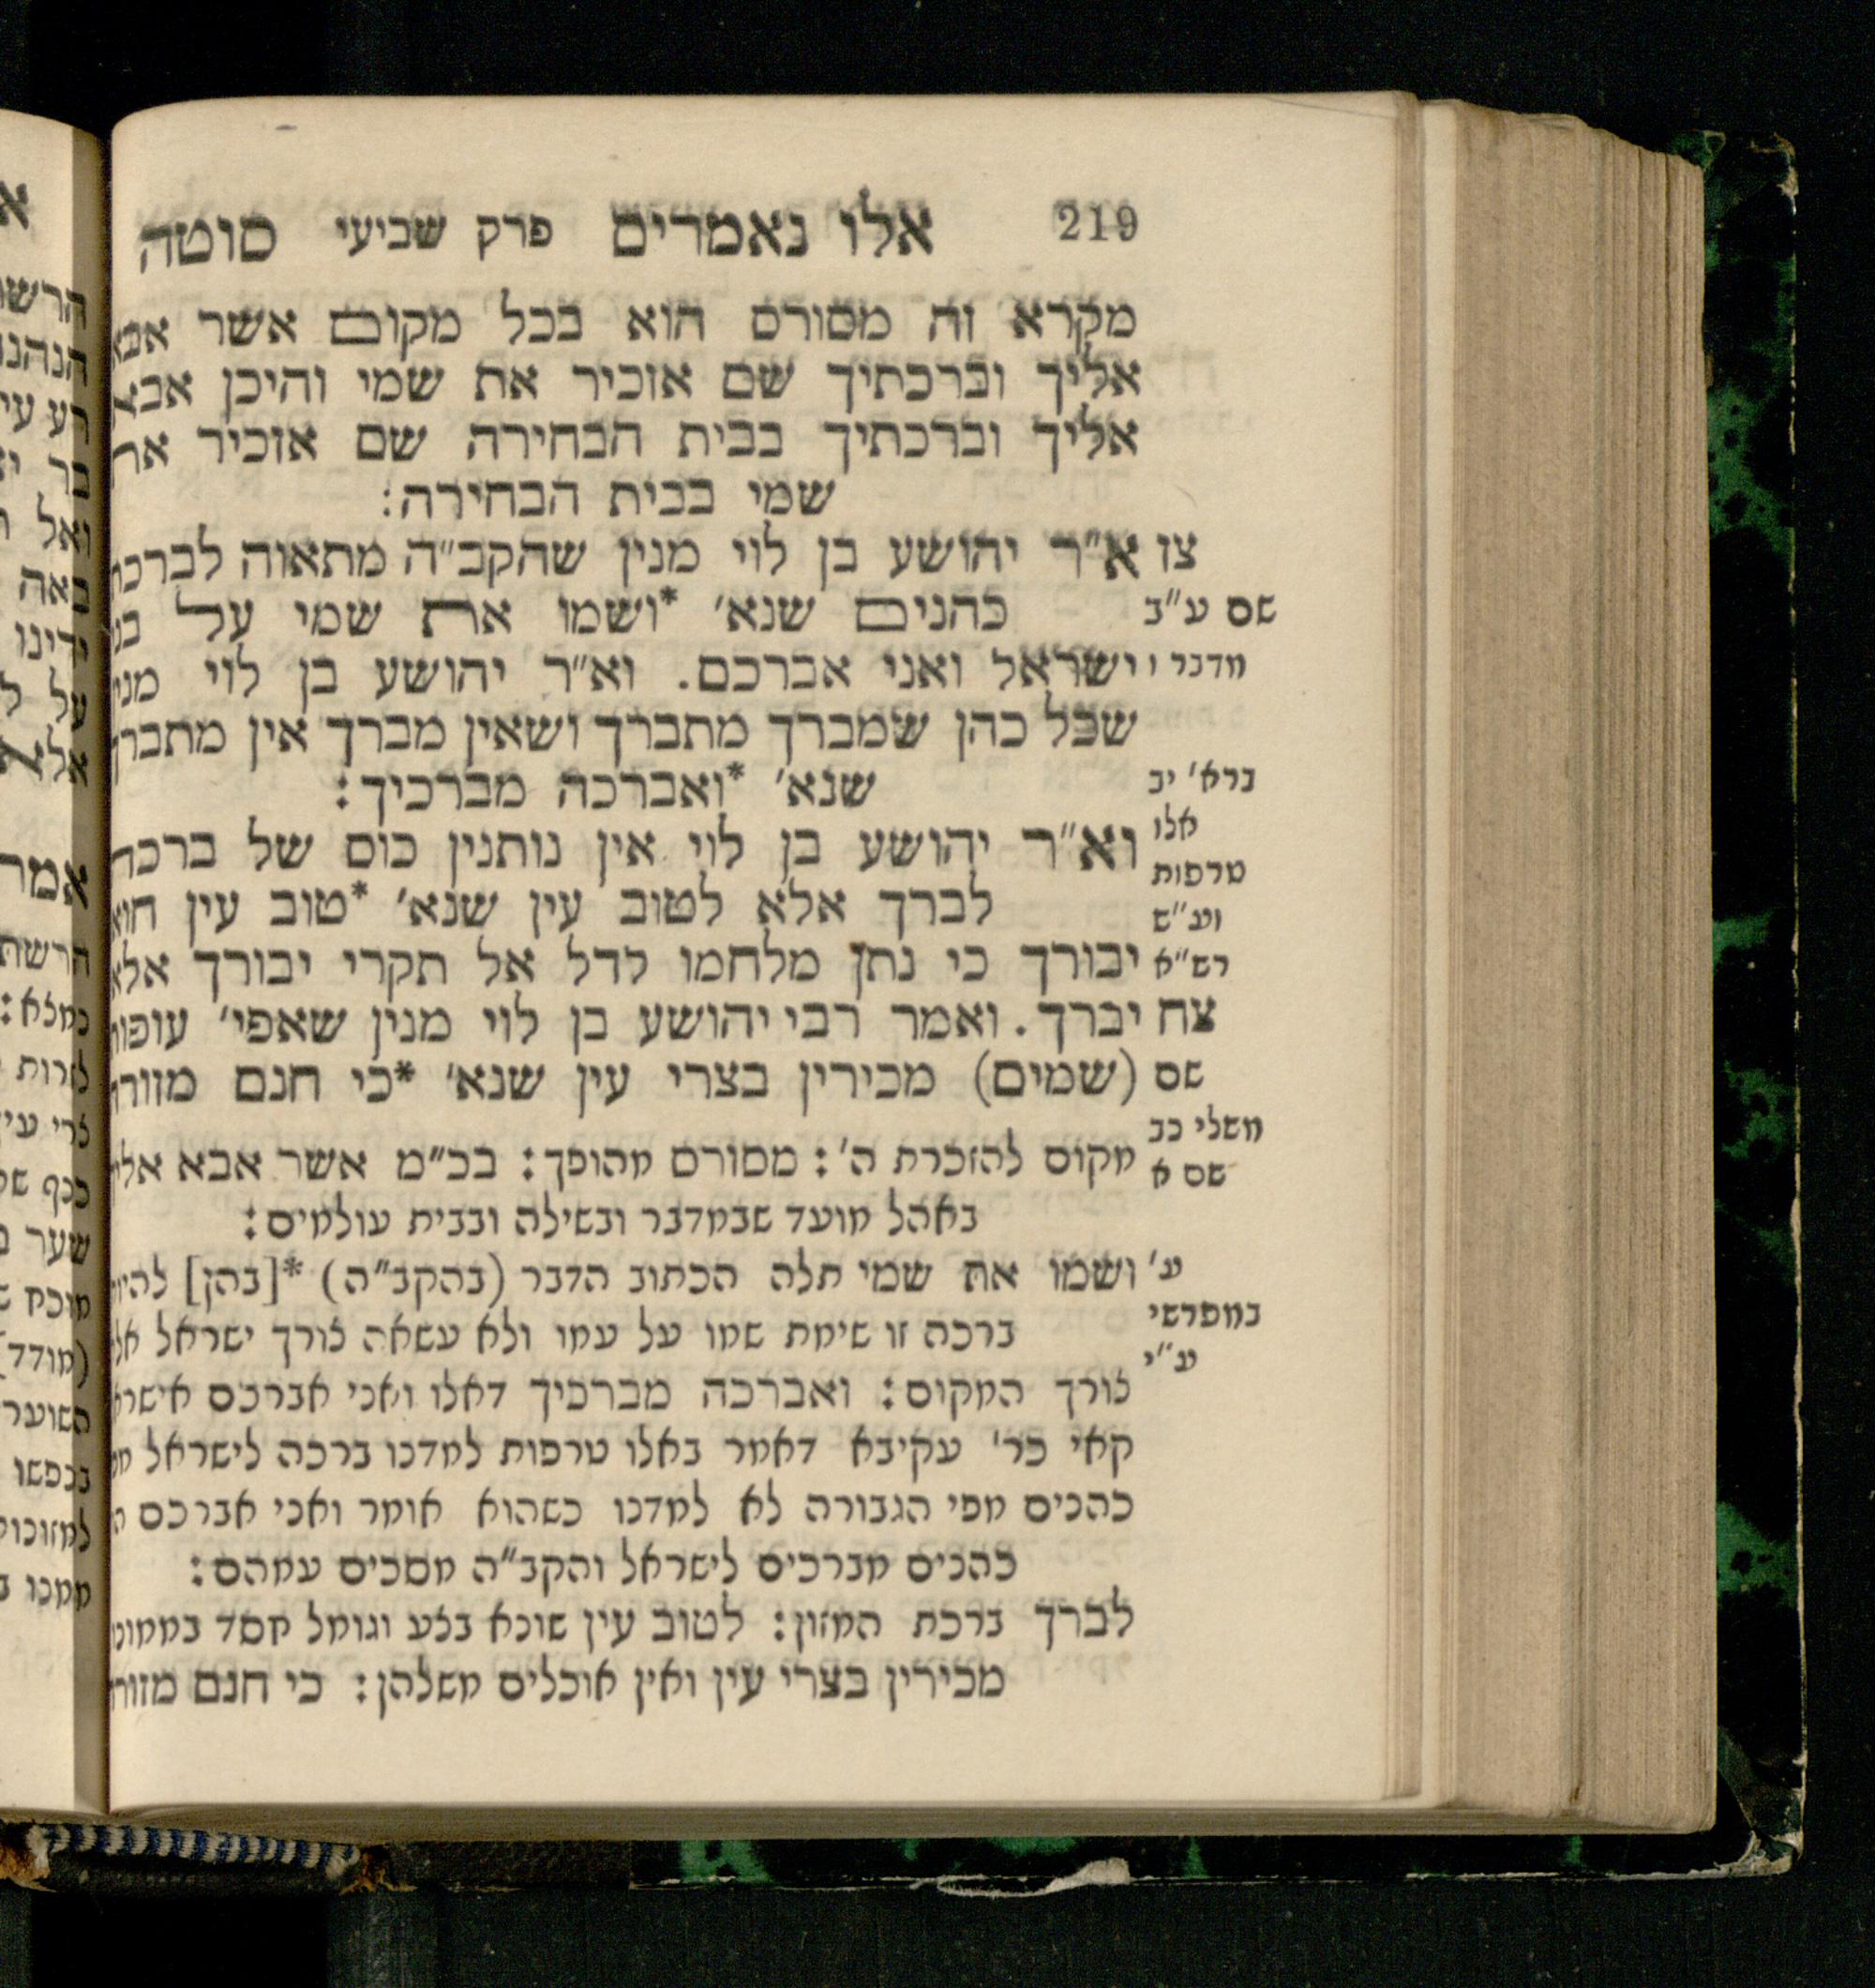 219 אלו נאמרים פרק שביעי סוטה
מקרא זה מסורס הוא בכל מקום אשר אבא
אליך וברכתיך שם אזכיר את שמי והיכן אבא
אליך וברכתיך בבית הבחירה שם אזכיר את
שמי בבית הבחירה:
צז א״ר יהושע בן לוי מנין שהקב״ה מתאוה לברכת
שם ע״ב כהנים שנא׳ *ושמו את שמי על בני
מדבר ו ישראל ואני אברכם. וא״ר יהושע בן לוי מנין
שכל כהן שמברך מתברך ושאין מברך אין מתברך
ברא׳ יב שנא׳ *ואברכה מברכיך:
אלו
וא״ר יהושע בן לוי אין נותנין כוס של ברכה
טרפות
לברך אלא לטוב עין שנא׳ *טוב עין הוא
וע״ש
רש״א יבורך כי נתן מלחמו לדל אל תקרי יבורך אלא
צח יברך. ואמר רבי יהושע בן לוי מנין שאפי׳ עופות
שם (שמים) מכירין בצרי עין שנא׳ *כי חנם מזורה
משלי כב
מקום להזכרת ה׳: מסורס מהופך: בכ״מ אשר אבא אליך
שם א
באהל מועד שבמדבר ובשילה ובבית עולמים:
ע׳ ושמו את שמי תלה הכתוב הדבר (בהקב״ה) *[בהן]
במפרשי
ברכה זו שימת שמו על עמו ולא עשאה צורך ישראל אלא
ע״י
צורך המקום: ואברכה מברכיך דאלו ואני אברכם אישראל
קאי כר׳ עקיבא דאמר באלו טרפות למדנו ברכה לישראל
כהנים מפי הגבורה לא למדנו כשהוא אומר ואני אברכם
כהנים מברכים לישראל והקב״ה מסכים עמהם:
לברך ברכת המזון: לטוב עין שונא בצע וגומל חסד בממונו
מכירין בצרי עין ואין אוכלים משלהן: כי חנם מזורה